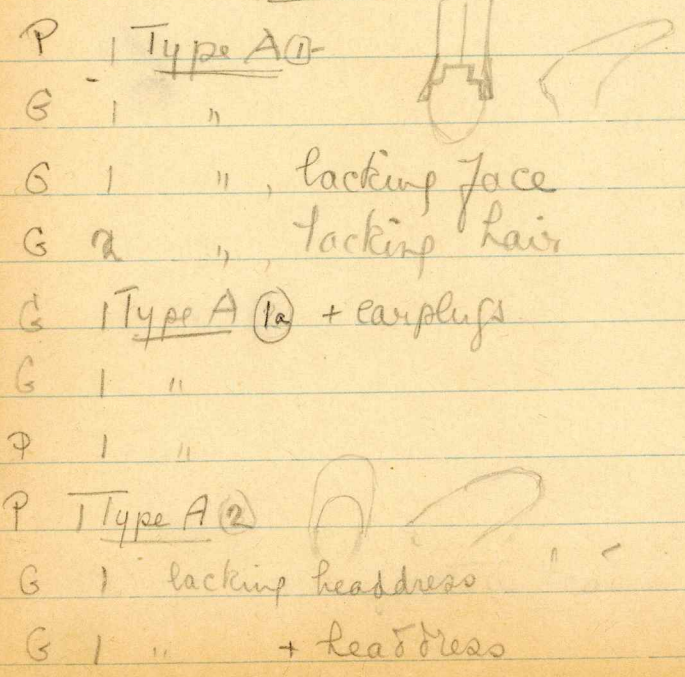 P 1 Type A ①-
G 1 "
G 1 " , lacking face
G 2 " , lacking hair
G 1 Type A (1a) + earplugs
G 1 "
P 1 "
P 1 Type A ②
G 1 lacking headdress
G 1 " + headdress